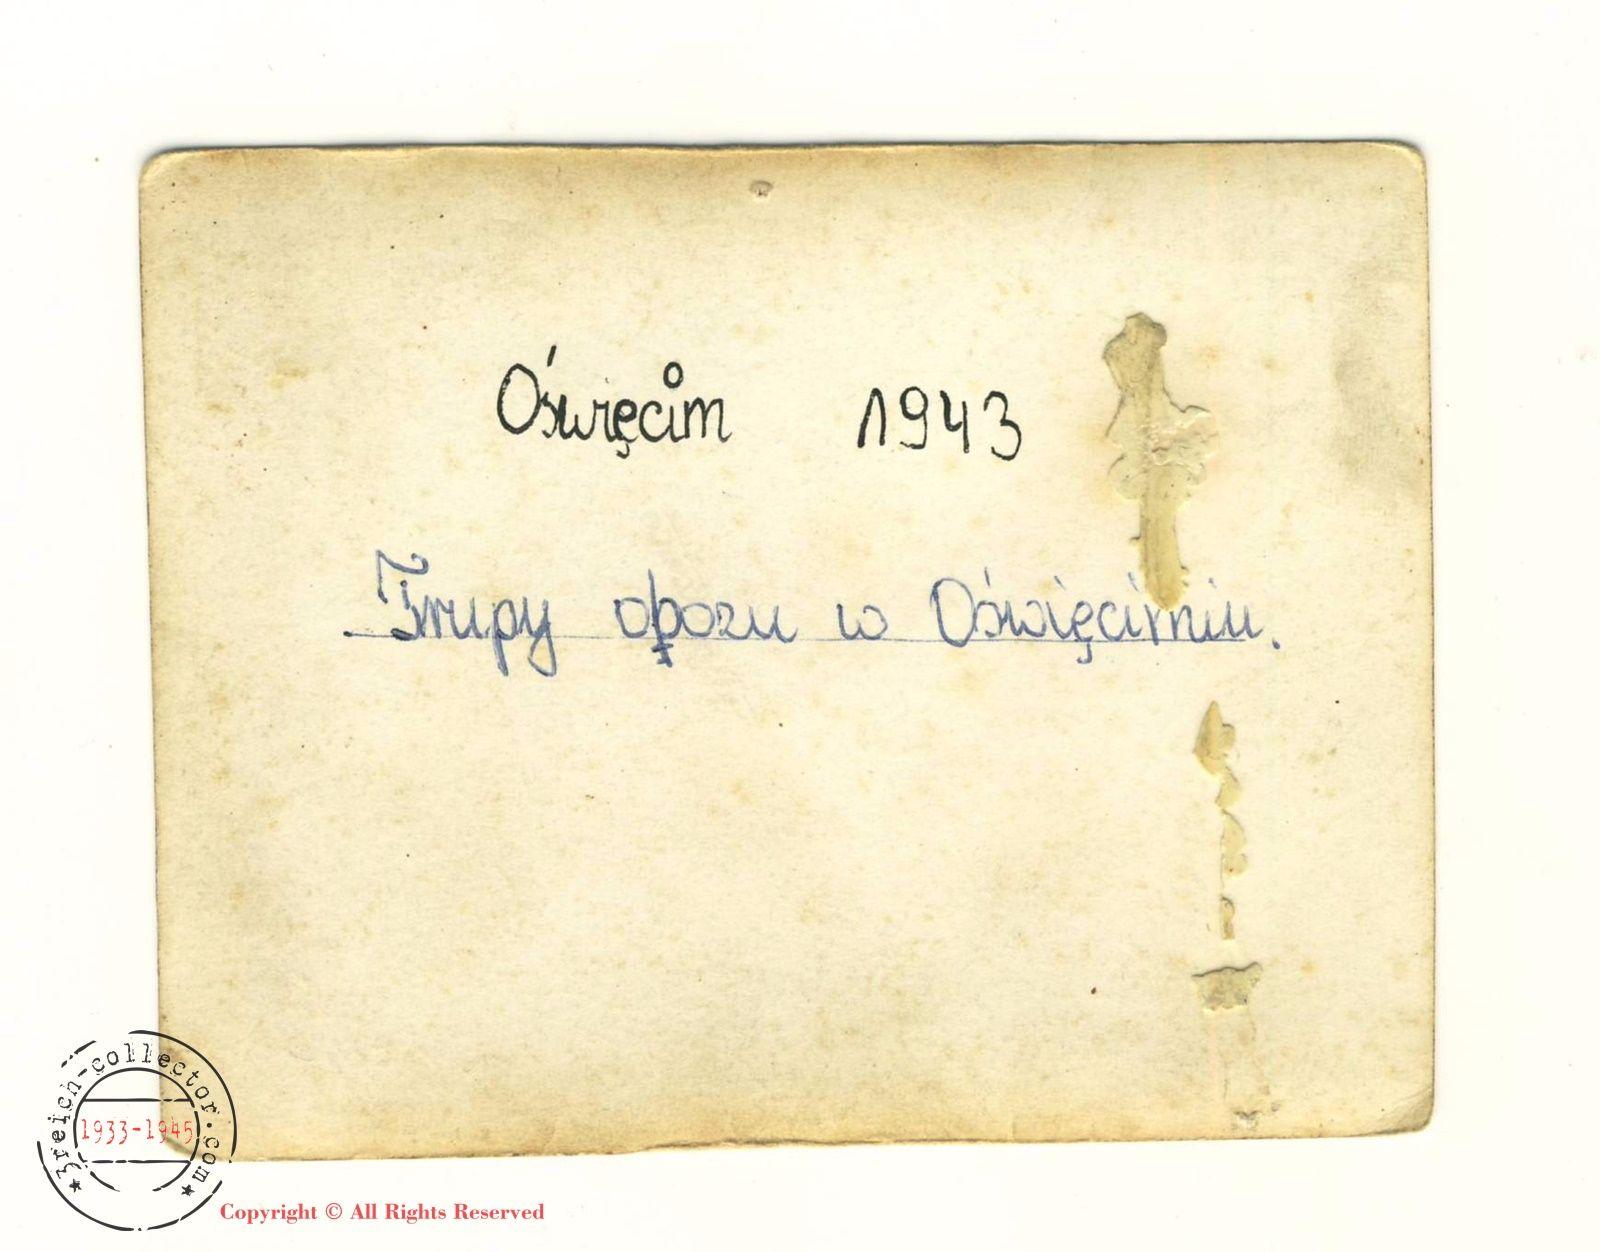 Oświęcim 1943
Trupy obozu w Oświęcimiu.
3reich-collector.com
1933-1945
Copyright © All Rights Reserved